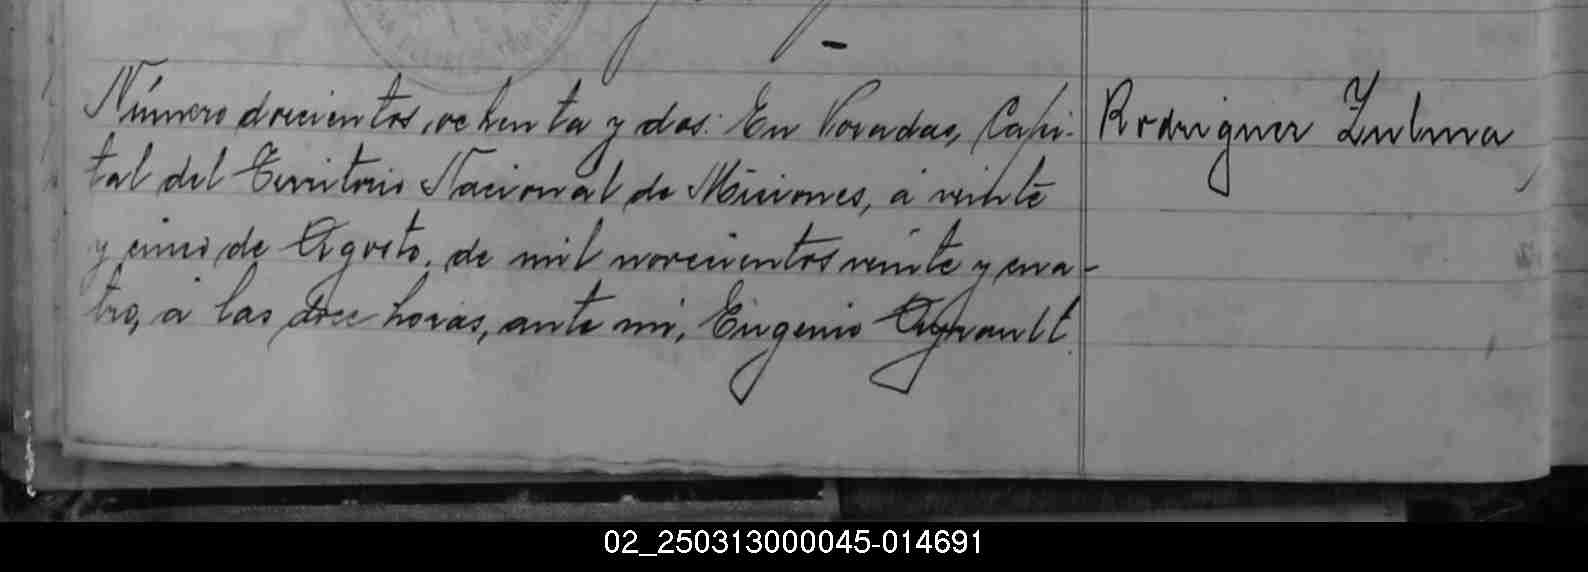 Número doscientos, ochenta y dos: En Posadas, Capi-
tal del Territorio Nacional de Misiones, á veinte
y cinco de Agosto, de mil novecientos veinte y cua-
tro, á las doce horas, ante mi, Eugenio Ayrault
Rodriguez Zulma
02_250313000045-014691